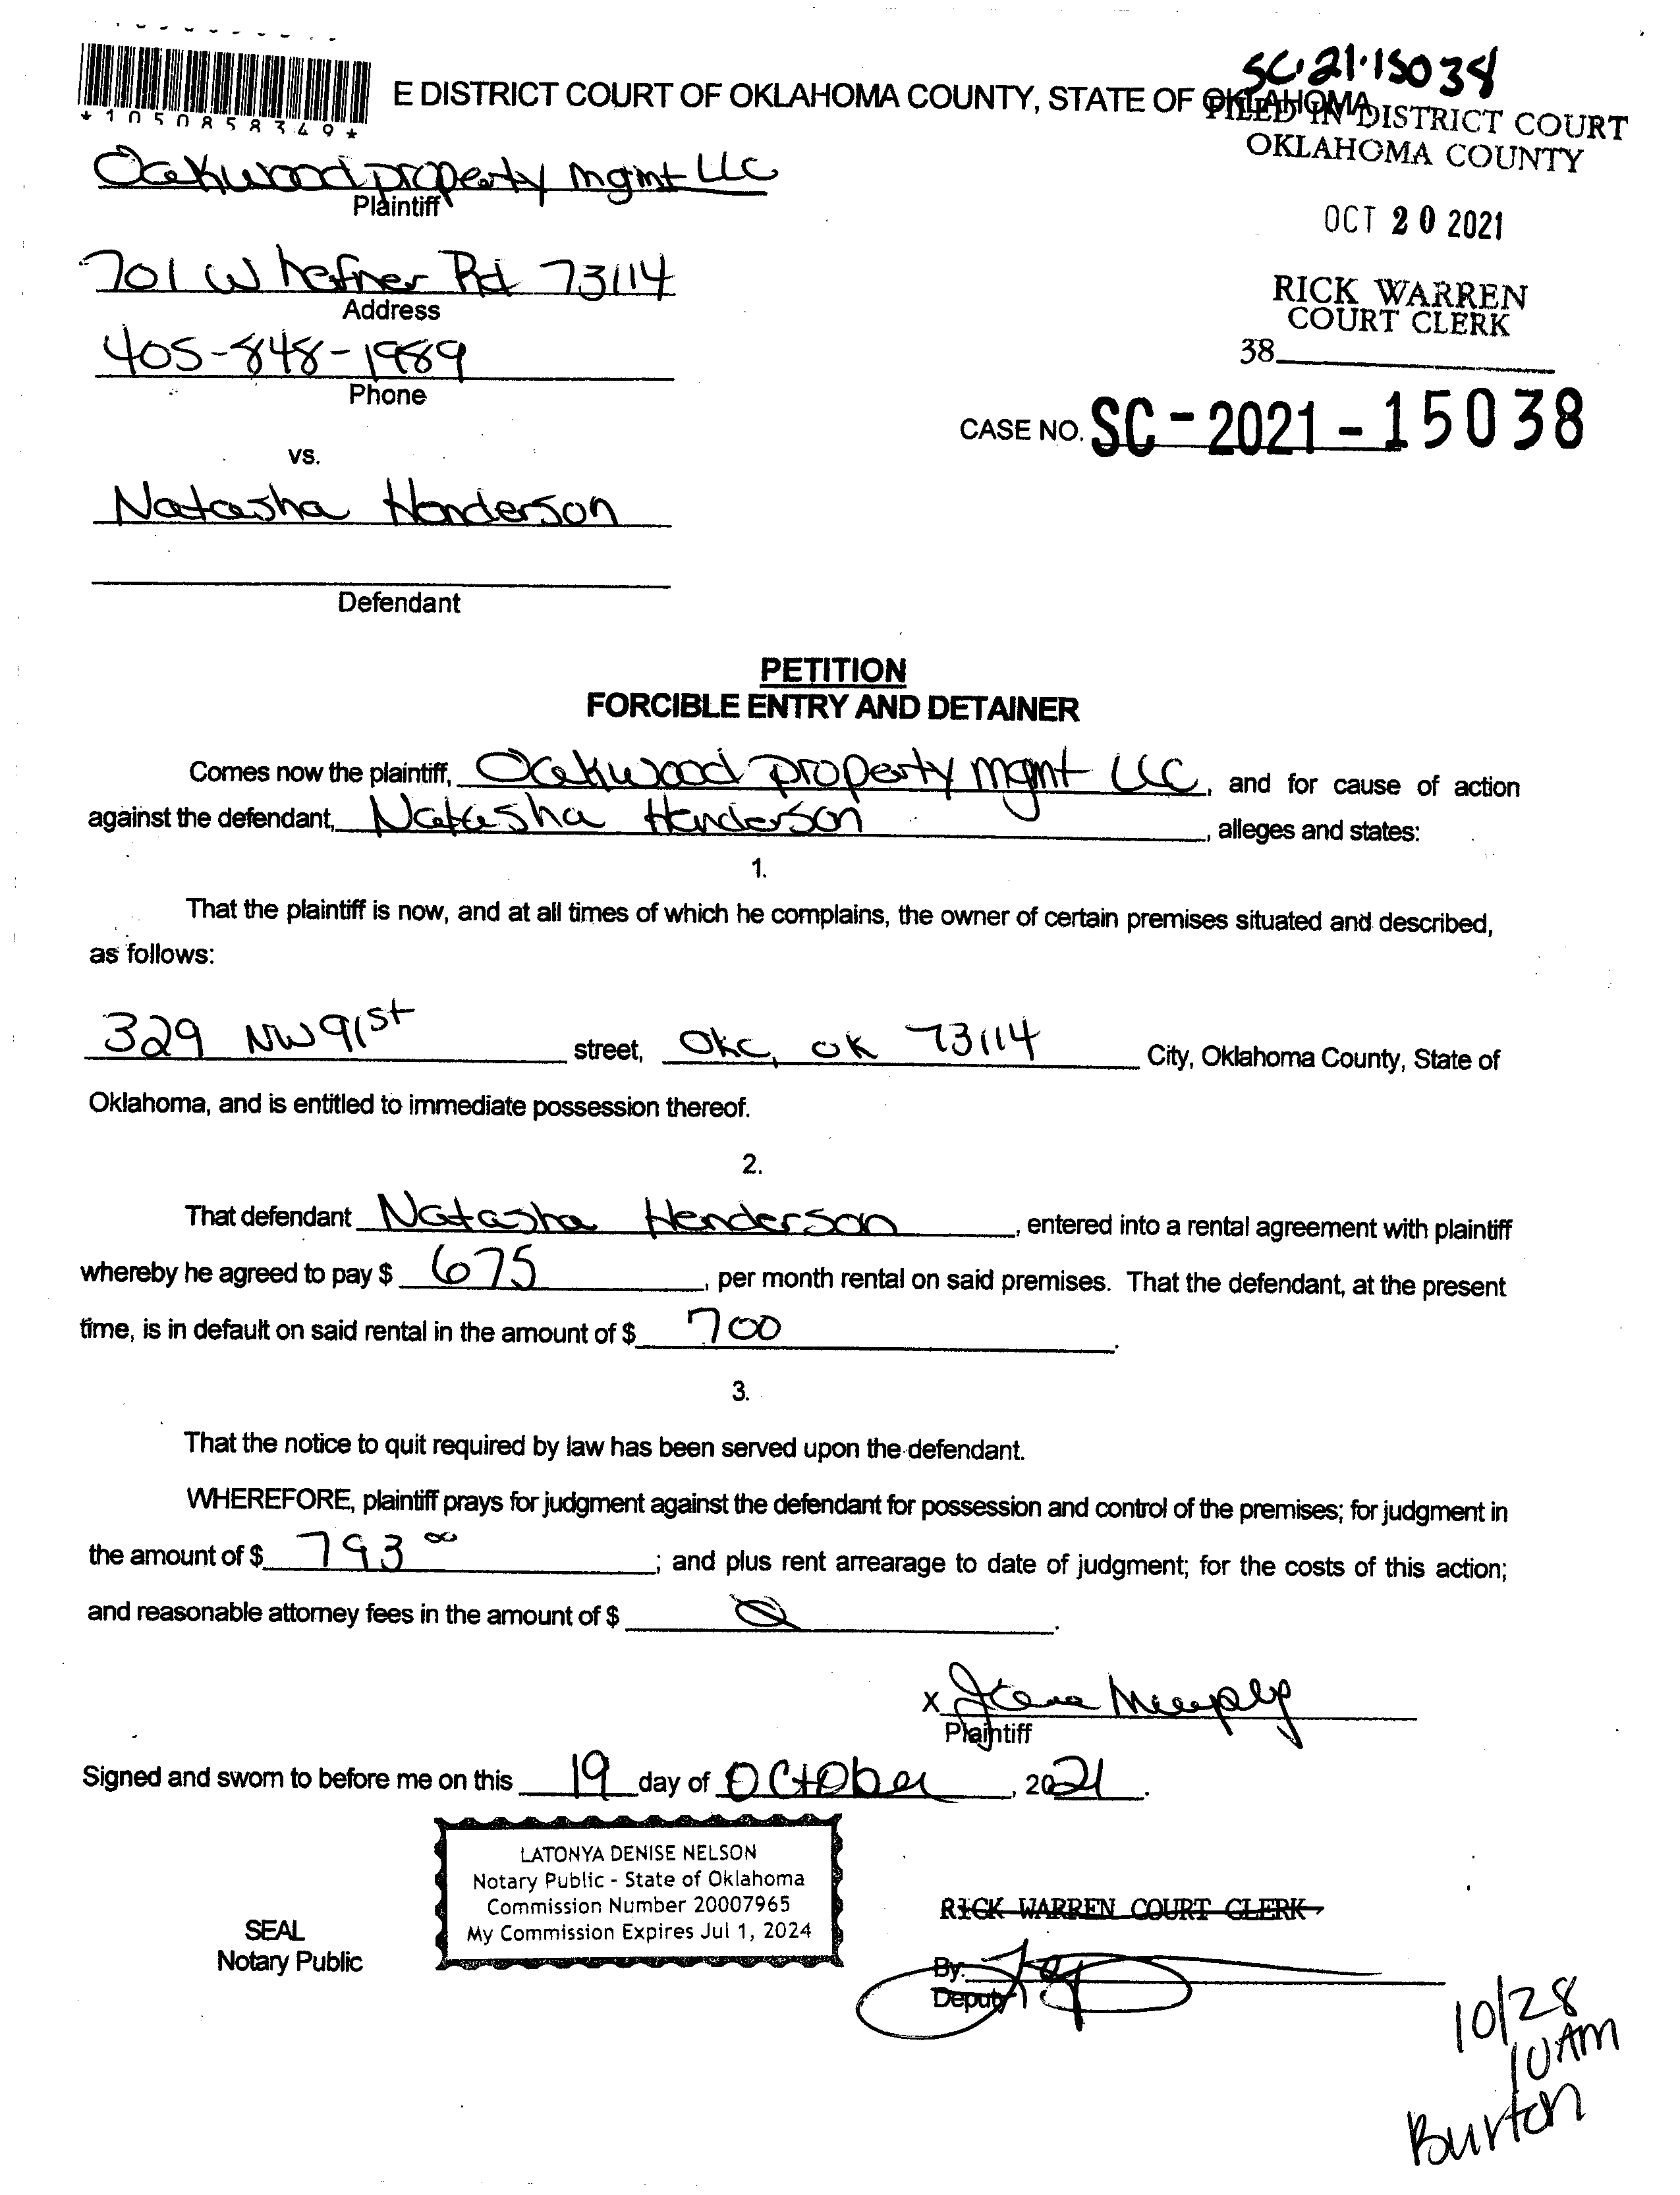 SC-21-15038
*1050858349*
E DISTRICT COURT OF OKLAHOMA COUNTY, STATE OF OKLAHOMA
FILED IN DISTRICT COURT
OKLAHOMA COUNTY
Oakwood property mgmt LLC
Plaintiff
OCT 20 2021
701 W hefner Rd 73114
Address
RICK WARREN
COURT CLERK
405-848-1989
38
Phone
CASE NO. SC-2021-15038
vs.
Natasha Henderson
Defendant
PETITION
FORCIBLE ENTRY AND DETAINER
Comes now the plaintiff, Oakwood property mgmt LLC, and for cause of action
against the defendant, Natasha Henderson, alleges and states:
1.
That the plaintiff is now, and at all times of which he complains, the owner of certain premises situated and described,
as follows:
329 NW 91st street, Okc, OK 73114 City, Oklahoma County, State of
Oklahoma, and is entitled to immediate possession thereof.
2.
That defendant Natasha Henderson, entered into a rental agreement with plaintiff
whereby he agreed to pay $ 675, per month rental on said premises. That the defendant, at the present
time, is in default on said rental in the amount of $ 700.
3.
That the notice to quit required by law has been served upon the defendant.
WHEREFORE, plaintiff prays for judgment against the defendant for possession and control of the premises; for judgment in
the amount of $ 793 00; and plus rent arrearage to date of judgment; for the costs of this action;
and reasonable attorney fees in the amount of $ 0.
X Murphy
Plaintiff
Signed and sworn to before me on this 19 day of October, 2021.
LATONYA DENISE NELSON
Notary Public - State of Oklahoma
Commission Number 20007965
My Commission Expires Jul 1, 2024
SEAL
Notary Public
RICK WARREN COURT CLERK
By:
Deputy
10/28
10AM
Burton